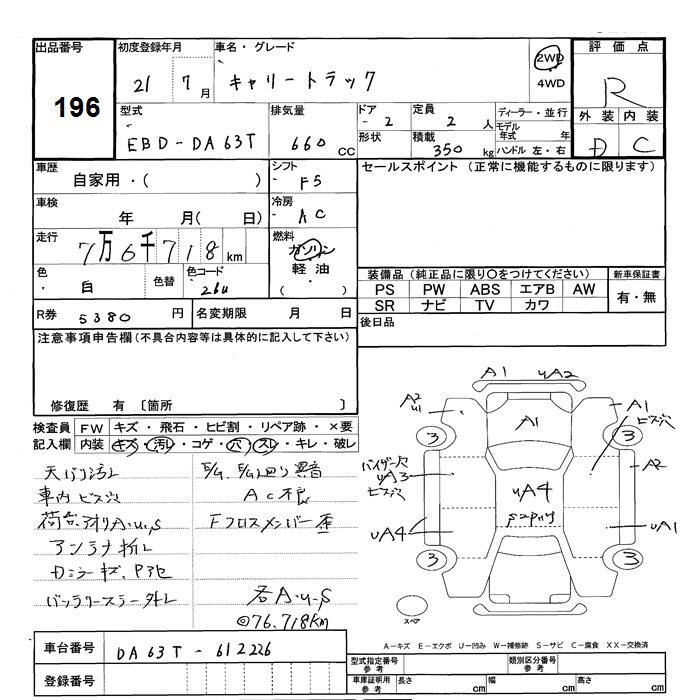 出品番号
196
初度登録年月
21 7 月
車名・グレード
キャリートラック
2WD
4WD
評価点
R
外装 内装
D C
型式
EBD-DA63T
排気量
660 cc
ドア
- 2
形状
定員
2 人
積載
350 kg
ディーラー・並行
モデル年式 年
ハンドル 左・右
車歴
自家用・( )
シフト
F5
セールスポイント (正常に機能するものに限ります)
車検
年 月( 日)
冷房
AC
走行
7万6千718km
燃料
ガソリン
軽油
( )
色
白
色替
色コード
26U
装備品 (純正品に限り〇をつけてください)
PS PW ABS エアB AW
SR ナビ TV カワ
新車保証書
有・無
R券 5380 円
名変期限 月 日
後日品
注意事項申告欄 (不具合内容等は具体的に記入して下さい)
修復歴 有 〔箇所 〕
検査員記入欄
FW キズ・飛石・ヒビ割・リペア跡・×要
内装 キズ・汚レ・コゲ・穴・スレ・キレ・破レ
天バリ汚レ
車内ビス穴
荷台、アオリA・u・S
アンテナ折レ
Dミラーキズ、
バッテリーステー外レ
異音
AC不良
Fクロスメンバー歪
各A・u・S
◎76,718km
A1 uA2
A2
u1
A1
A1
ビス穴
3 3
バイザー穴
uA3
ビス穴
A2
uA4
uA4
uA1
3 3
スペア
A-キズ E-エクボ U-凹み W-補修跡 S-サビ C-腐食 XX-交換済
車台番号 DA63T-612226
登録番号
型式指定番号 参考
類別区分番号 参考
車庫証明用 参考
長さ cm 幅 cm 高さ cm